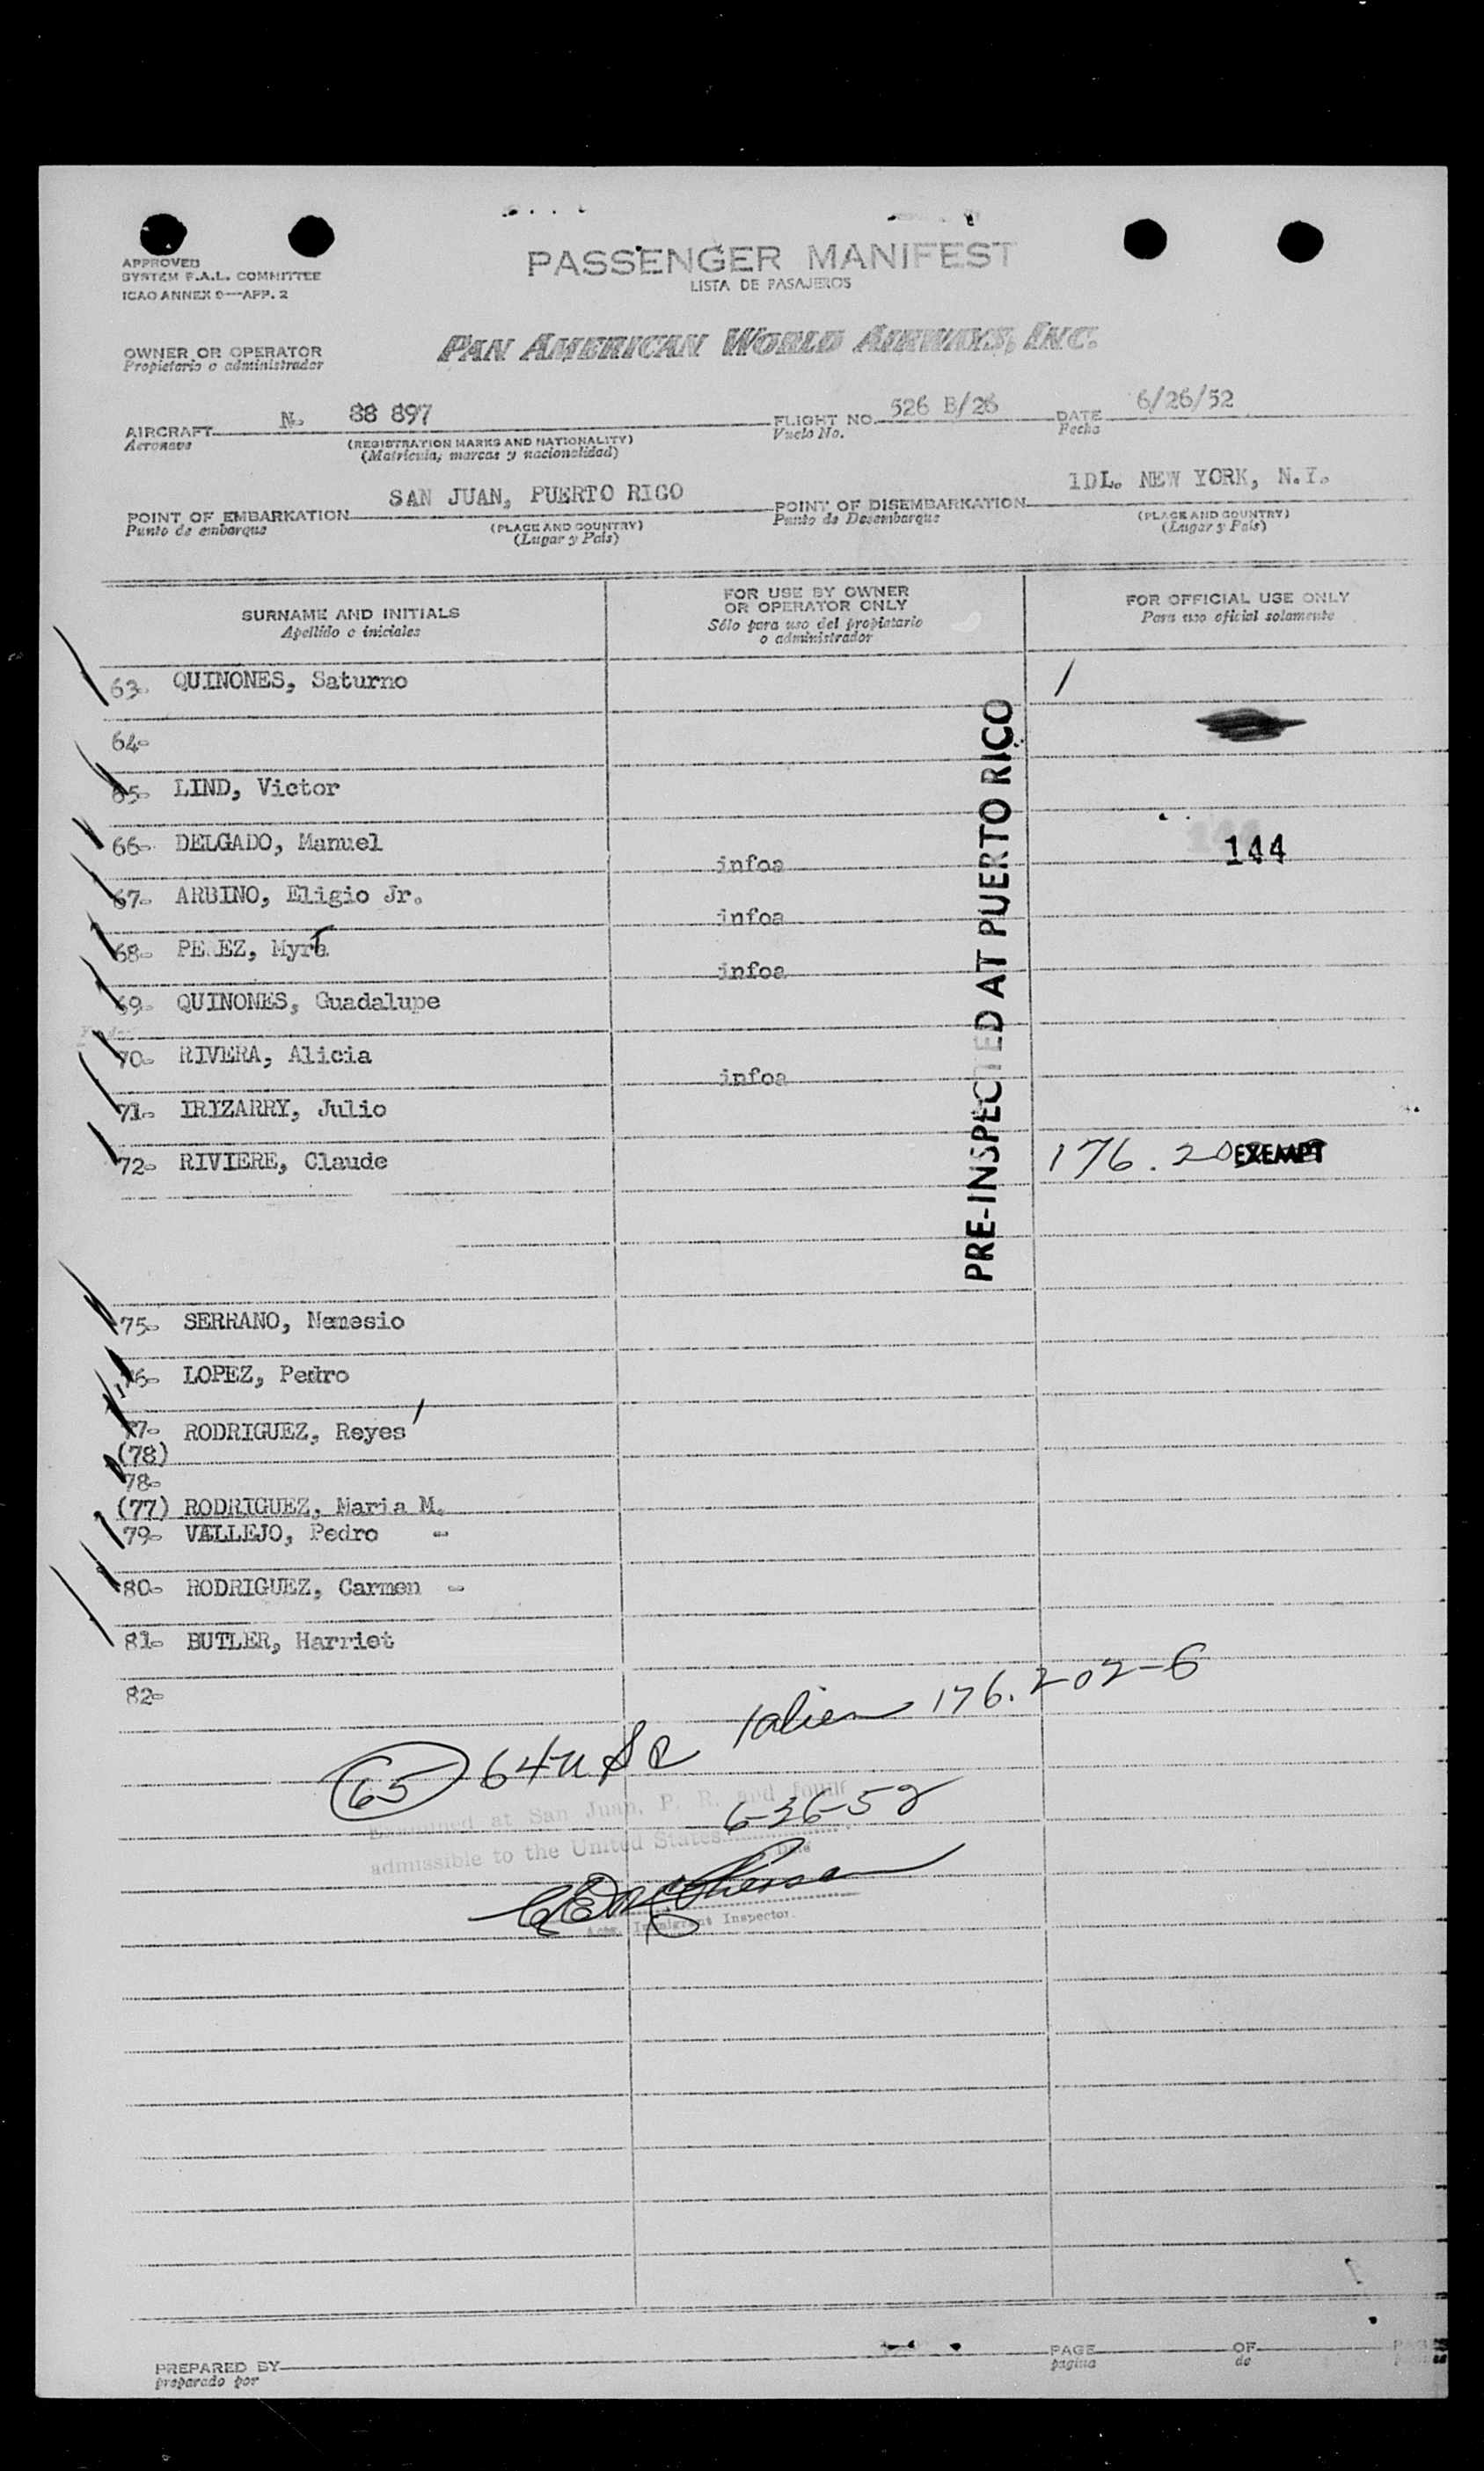 APPROVED
SYSTEM F.A.L. COMMITTEE
ICAO ANNEX 9—APP. 2
PASSENGER MANIFEST
LISTA DE PASAJEROS
OWNER OR OPERATOR
Propietario o administrador
PAN AMERICAN WORLD AIRWAYS, INC.
AIRCRAFT N. 88 897 FLIGHT NO. 526 B/26 DATE 6/26/52
Aeronave (REGISTRATION MARKS AND NATIONALITY) Vuelo No. Fecha
(Matricula, marcas y nacionalidad)
POINT OF EMBARKATION SAN JUAN, PUERTO RICO POINT OF DISEMBARKATION IDL. NEW YORK, N.Y.
Punto de embarque (PLACE AND COUNTRY) Punto de Desembarque (PLACE AND COUNTRY)
(Lugar y País) (Lugar y País)
SURNAME AND INITIALS
Apellido e iniciales
FOR USE BY OWNER
OR OPERATOR ONLY
Sólo para uso del propietario
o administrador
FOR OFFICIAL USE ONLY
Para uso oficial solamente
63- QUINONES, Saturno /
64-
65- LIND, Victor
66- DELGADO, Manuel 144
infoa
67- ARBINO, Eligio Jr.
infoa
68- PEREZ, Myrt
infoa
69- QUINONES, Guadalupe
70- RIVERA, Alicia
infoa
71- IRIZARRY, Julio
72- RIVIERE, Claude 176.20 EXEMPT
PRE-INSPECTED AT PUERTO RICO
75- SERRANO, Nemesio
76- LOPEZ, Pedro
77- RODRIGUEZ, Reyes
(78)
78-
(77) RODRIGUEZ, Maria M.
79- VALLEJO, Pedro -
80- RODRIGUEZ, Carmen -
81- BUTLER, Harriet
82-
1 alien 176.202-6
65 64 USC
Examined at San Juan, P. R. and found
6-26-52
admissible to the United States
Date
Immigrant Inspector.
PREPARED BY PAGE OF PAGES
preparado por página de